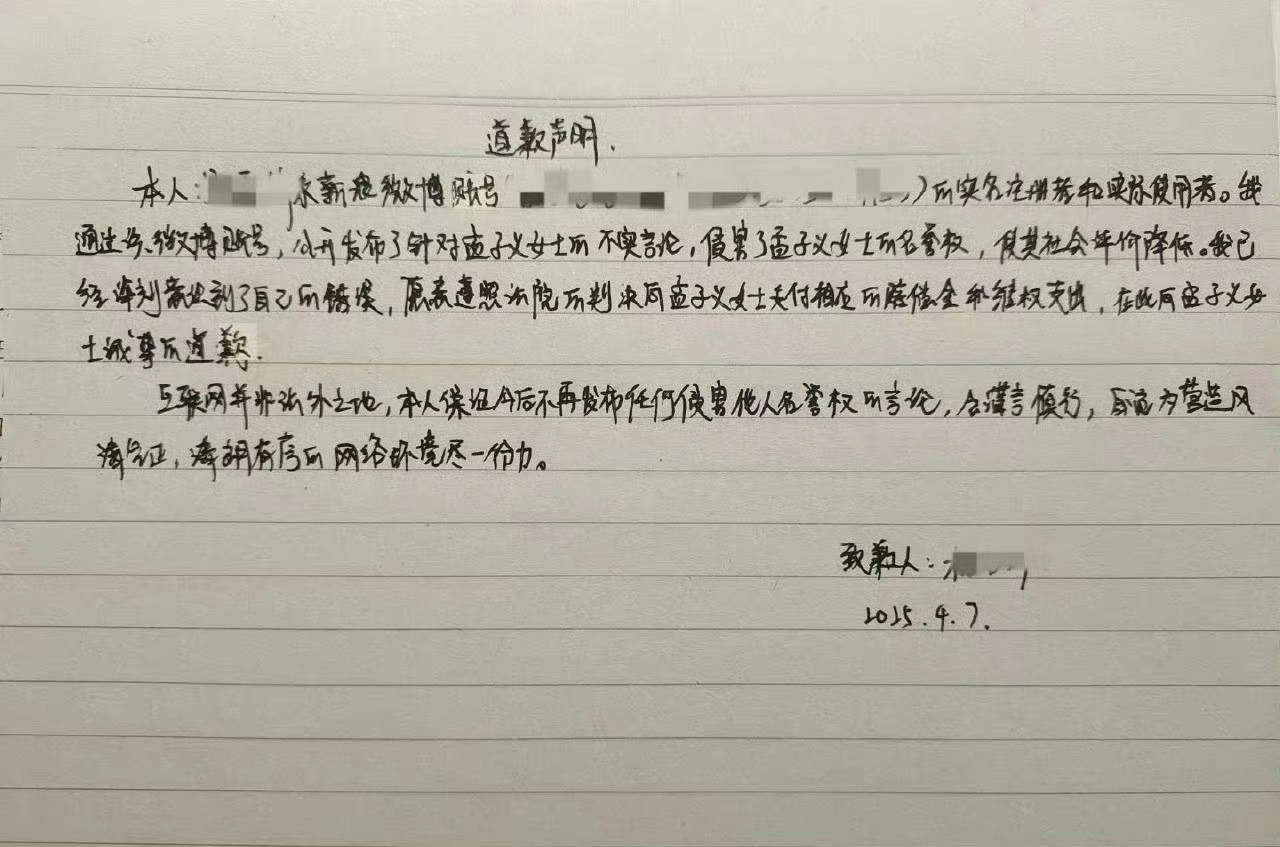 道歉声明.
本人: 系新浪微博账号 )的实名注册者和实际使用者。我
通过该微博账号,公开发布了针对孟子义女士的不实言论,侵害了孟子义女士的名誉权,使其社会评价降低。我已
经深刻意识到了自己的错误,愿意遵照法院的判决向孟子义女士支付相应的赔偿金和维权支出,在此向孟子义女
士诚挚的道歉.
互联网并非法外之地,本人保证今后不再发布任何侵害他人名誉权的言论,会谨言慎行,自觉为营造风
清气正,清朗有序的网络环境尽一份力。
致歉人:
2025.4.7.